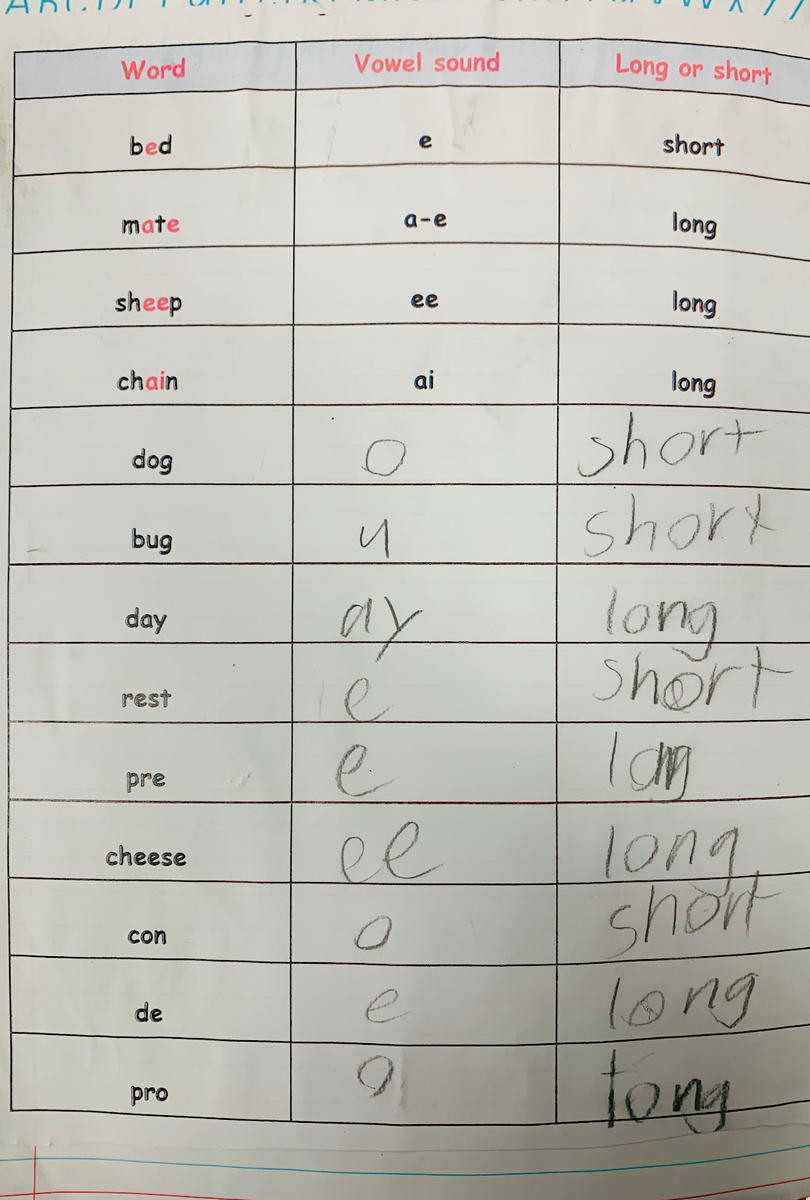 Word Vowel sound Long or short
bed e short
mate a-e long
sheep ee long
chain ai long
dog o short
bug u short
day ay long
rest e short
pre e long
cheese ee long
con o short
de e long
pro o long